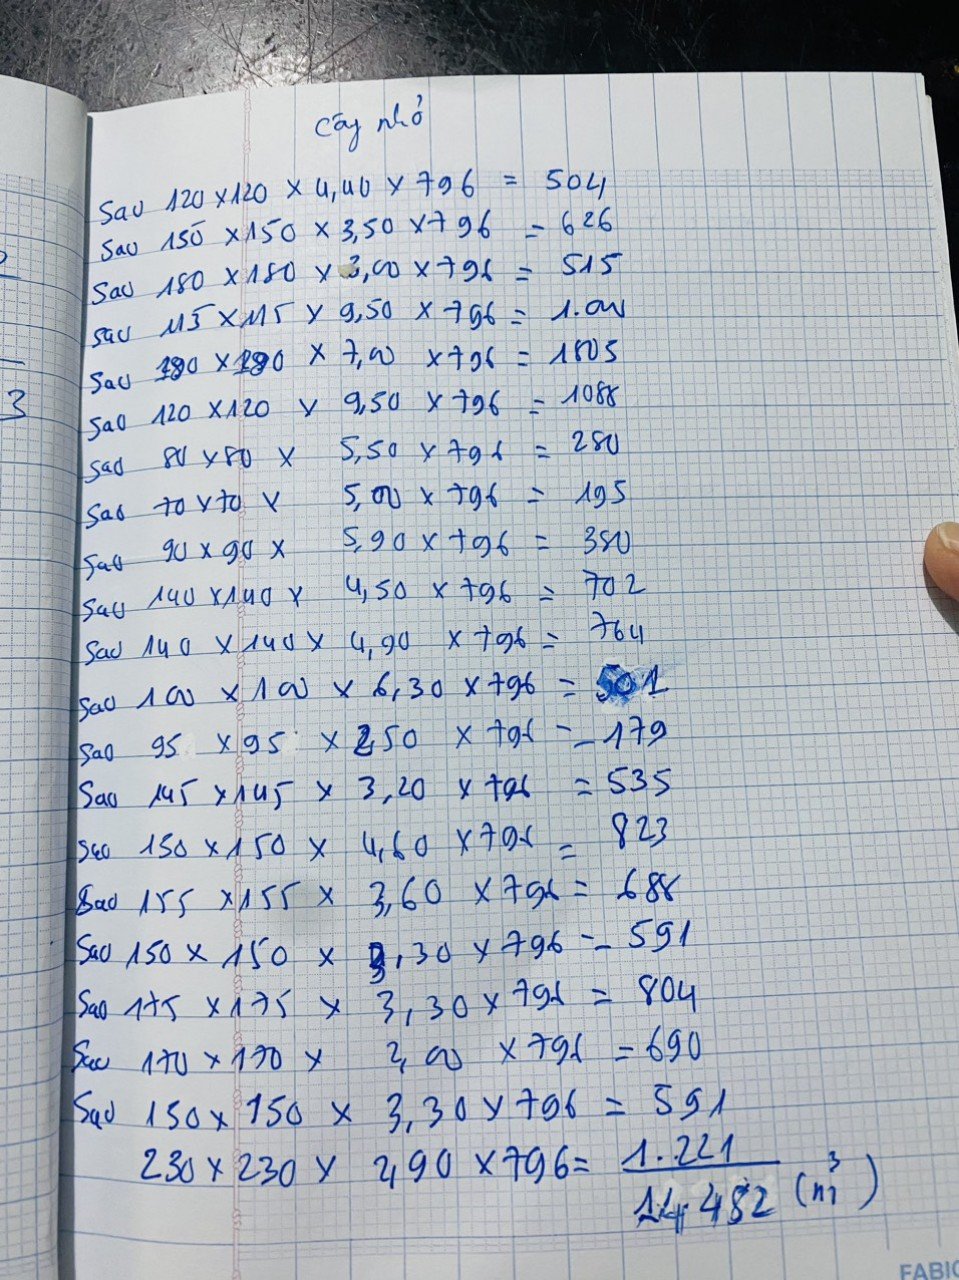 Cây nhỏ
Sao 120 x 120 x 4,40 x 796 = 504
Sao 150 x 150 x 3,50 x 796 = 626
Sao 180 x 180 x 3,00 x 796 = 515
Sao 115 x 115 x 9,50 x 796 = 1.000
Sao 180 x 180 x 7,00 x 796 = 1805
Sao 120 x 120 x 9,50 x 796 = 1088
Sao 80 x 80 x 5,50 x 796 = 280
Sao 70 x 70 x 5,00 x 796 = 195
Sao 90 x 90 x 5,90 x 796 = 380
Sao 140 x 140 x 4,50 x 796 = 702
Sao 140 x 140 x 4,90 x 796 = 764
Sao 100 x 100 x 6,30 x 796 = 501
Sao 95 x 95 x 2,50 x 796 = 179
Sao 145 x 145 x 3,20 x 796 = 535
Sao 150 x 150 x 4,60 x 796 = 823
Sao 155 x 155 x 3,60 x 796 = 688
Sao 150 x 150 x 3,30 x 796 = 591
Sao 175 x 175 x 3,30 x 796 = 804
Sao 170 x 170 x 3,00 x 796 = 690
Sao 150 x 150 x 3,30 x 796 = 591
230 x 230 x 2,90 x 796 = 1.221
14,482 (m³)
3
FABIC